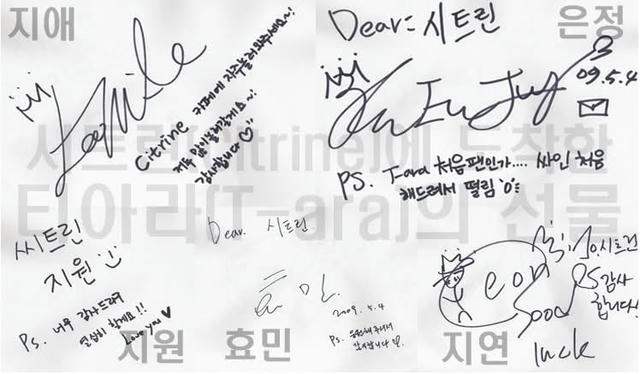 지애
Citrine 카페에 자주놀러와주세요~!
저두 많이놀러갈게요~!
감사합니다♡
Dear: 시트린
은정
09.5.4
PS. T-ara 처음팬인가.... 싸인 처음
해드려서 떨림
시트린(Citrine)에 도착한
티아라(T-ara)의 선물
씨트린
지원
Ps. 너무 감사드리구
열심히 할게요!!
Love you ♥
지원
Dear. 시트린
효민
2009. 5. 4
Ps. 응원해주셔서
감사합니다
효민
To.시트린
감사
합니다!
Good
luck
지연